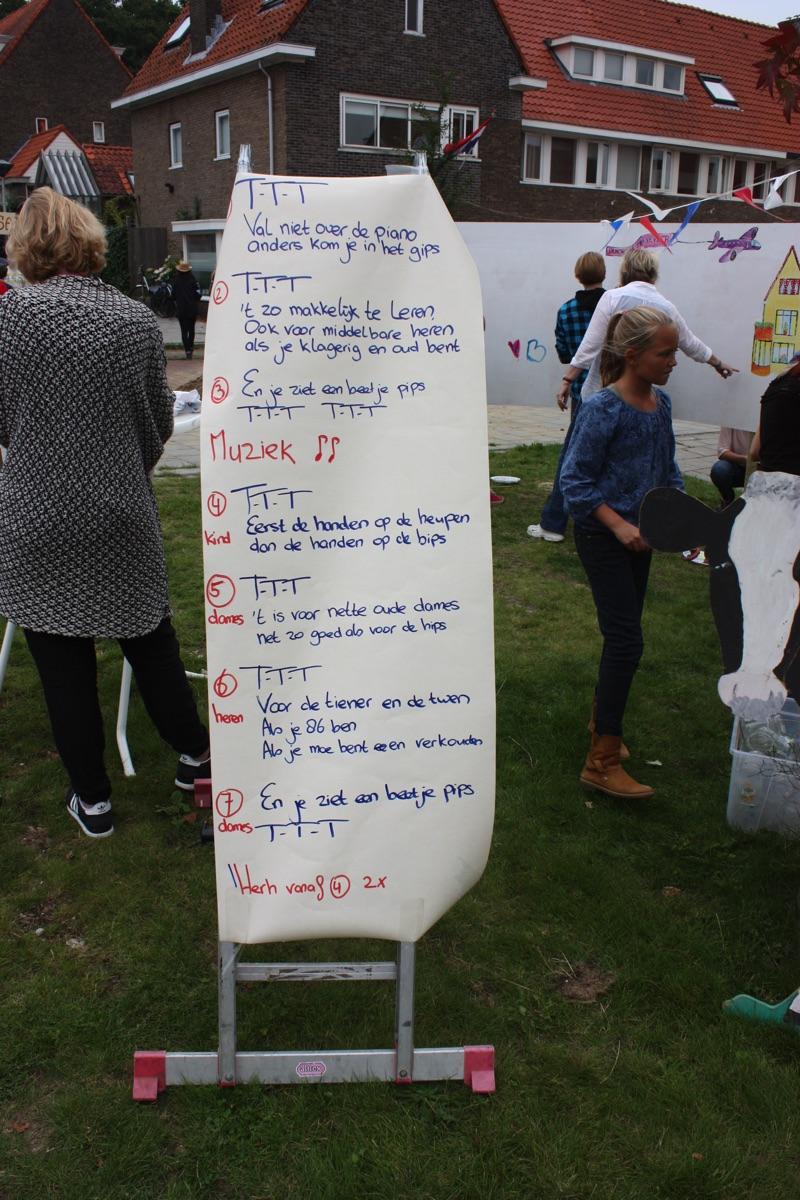 T-T-T
Val niet over de piano
anders kom je in het gips
② T-T-T
't zo makkelijk te leren
Ook voor middelbare heren
als je klagerig en oud bent
③ En je ziet een beetje pips
T-T-T T-T-T
Muziek ♫
④ T-T-T
kind
Eerst de handen op de heupen
dan de handen op de bips
⑤ T-T-T
dames
't is voor nette oude dames
net zo goed als voor de hips
⑥ T-T-T
heren
Voor de tiener en de twen
Als je 86 ben
Als je moe bent en verkouden
⑦ En je ziet een beetje pips
dames T-T-T
Herh vanaf ④ 2x